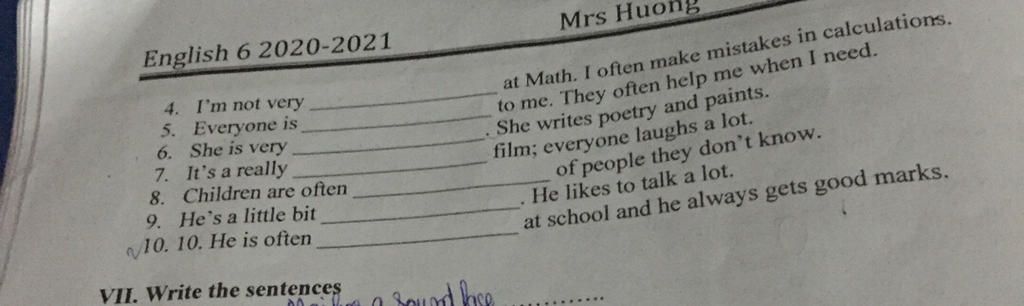 English 6 2020-2021 Mrs Huong
4. I'm not very ____________ at Math. I often make mistakes in calculations.
5. Everyone is ____________ to me. They often help me when I need.
6. She is very ____________. She writes poetry and paints.
7. It's a really ____________ film; everyone laughs a lot.
8. Children are often ____________ of people they don't know.
9. He's a little bit ____________. He likes to talk a lot.
10. 10. He is often ____________ at school and he always gets good marks.
VII. Write the sentences
a round face ..............